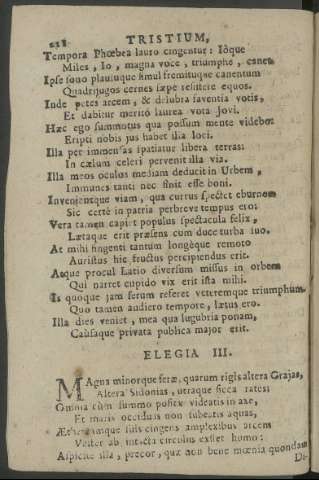 238 TRISTIUM,
Tempora Phœbea lauro cingentur: Iôque
Miles, Io, magna voce, triumphe, canet.
Ipse sono plausuque simul fremituque canentum
Quadrijugos cernes sæpe resistere equos.
Inde petes arcem, & delubra faventia votis,
Et dabitur merito laurea vota Jovi.
Hæc ego summotus qua possum mente videbo:
Eripti nobis jus habet illa loci.
Illa per immensas spatiatur libera terras:
In cælum celeri pervenit illa via.
Illa meos oculos mediam deducit in Urbem,
Immunes tanti nec sinit esse boni.
Invenietque viam, qua currus spectet eburnos
Sic certè in patria per breve tempus ero:
Vera tamen capiet populus spectacula felix,
Lætaque erit præsens cum duce turba suo.
At mihi fingenti tantum longèque remoto
Auribus hic fructus percipiendus erit.
Atque procul Latio diversum missus in orbem
Qui narret cupido vix erit ista mihi.
Is quoque jam serum referet veteremque triumphum.
Quo tamen audiero tempore, lætus ero.
Illa dies veniet, mea qua lugubria ponam,
Causaque privata publica major erit.
ELEGIA III.
MAgna minorque feræ, quarum regis altera Grajas,
Altera Sidonias, utraque sicca rates:
Omnia cùm summo positæ videatis in axe,
Et maris occiduis non subeatis aquas,
Ætheriamque suis cingens amplexibus arcem
Vester ab intacta circulus exstet homo:
Aspicite illa, precor, quæ non bene mœnia quondam